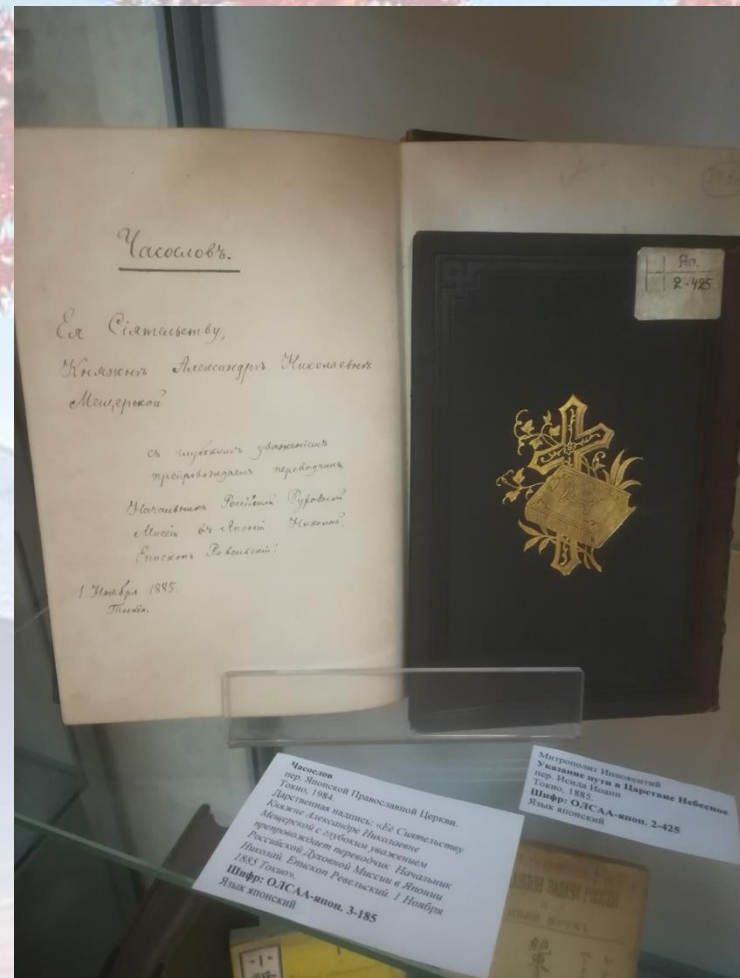 Часословъ.
Ея Сіятельству,
Княжнѣ Александрѣ Николаевнѣ
Мещерской
съ глубокимъ уваженіемъ
препровождаетъ переводчикъ
Начальникъ Россійской Духовной
Миссіи въ Японіи Николай,
Епископъ Ревельскій.
1 Ноября 1885.
Токіо.
Яп.
2-425
Часослов
пер. Японской Православной Церкви.
Токио, 1984.
Дарственная надпись: «Её Сиятельству
Княжне Александре Николаевне
Мещерской с глубоким уважением
препровождает переводчик Начальник
Российской Духовной Миссии в Японии
Николай, Епископ Ревельский. 1 Ноября
1885 Токио».
Шифр: ОЛСАА-япон. 3-185
Язык японский
Митрополит Иннокентий
Указание пути в Царствие Небесное
пер. Исида Иоанн
Токио, 1885.
Шифр: ОЛСАА-япон. 2-425
Язык японский